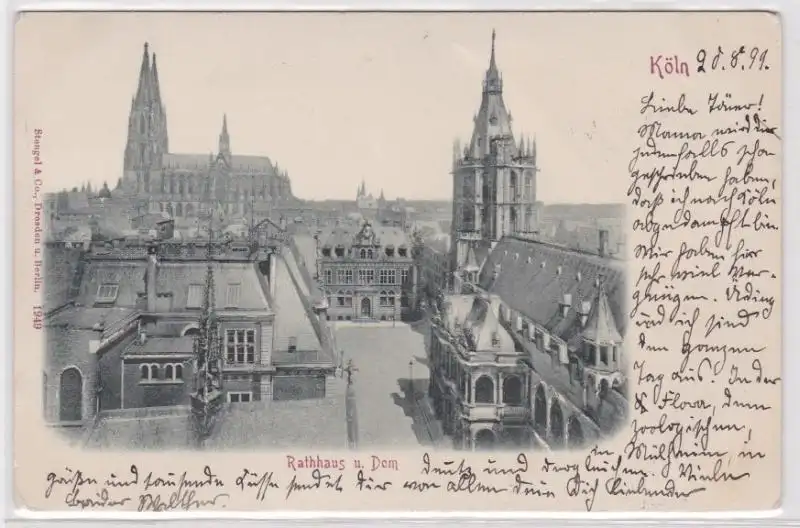 Köln 28.8.99.
Liebe
Mama wird Dir
jedenfalls schon
geschrieben haben,
daß ich nach Köln
abgedampft bin.
Wir haben hier
sehr viel Ver-
gnügen.
und ich sind
den ganzen
Tag aus. In der
Flora, dem
zoologischen,
in Mülheim, in
Deutz und dergleichen. Viele
Grüße und tausende Küsse sendet Dir von allen Dein Dich liebender
Walther.
Rathhaus u. Dom
Stengel & Co., Dresden u. Berlin. 1949